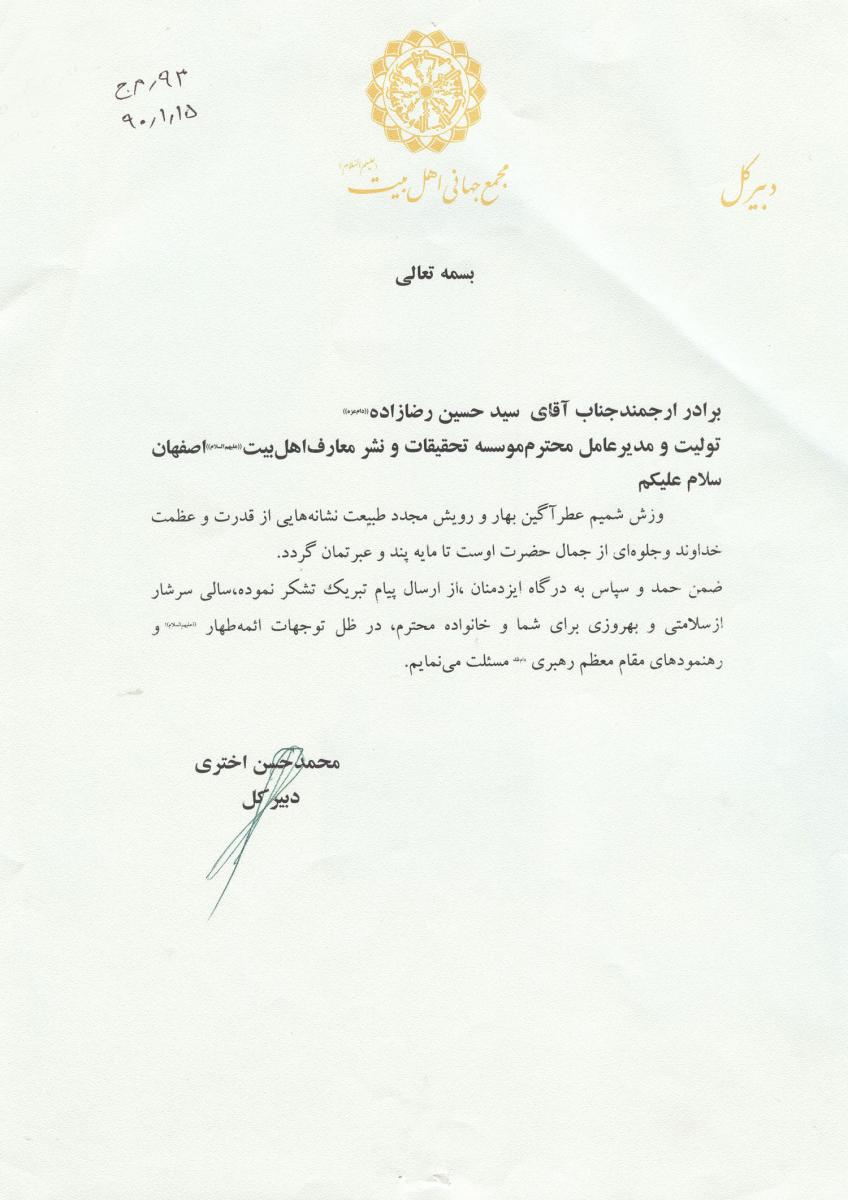 ۹۳/م ج
۹۰/۱/۱۵
مجمع جهانی اهل بیت (علیهم السلام)
دبیرکل
بسمه تعالی
برادر ارجمندجناب آقای سید حسین رضازاده((دام عزه))
تولیت و مدیرعامل محترم‌موسسه تحقیقات و نشر معارف‌اهل‌بیت((علیهم السلام))اصفهان
سلام علیکم
وزش شمیم عطرآگین بهار و رویش مجدد طبیعت نشانه‌هایی از قدرت و عظمت
خداوند وجلوه‌ای از جمال حضرت اوست تا مایه پند و عبرتمان گردد.
ضمن حمد و سپاس به درگاه ایزدمنان ،از ارسال پیام تبریک تشکر نموده،سالی سرشار
ازسلامتی و بهروزی برای شما و خانواده محترم، در ظل توجهات ائمه‌طهار ((علیهم السلام)) و
رهنمودهای مقام معظم رهبری مسئلت می‌نمایم.
محمدحسن اختری
دبیرکل